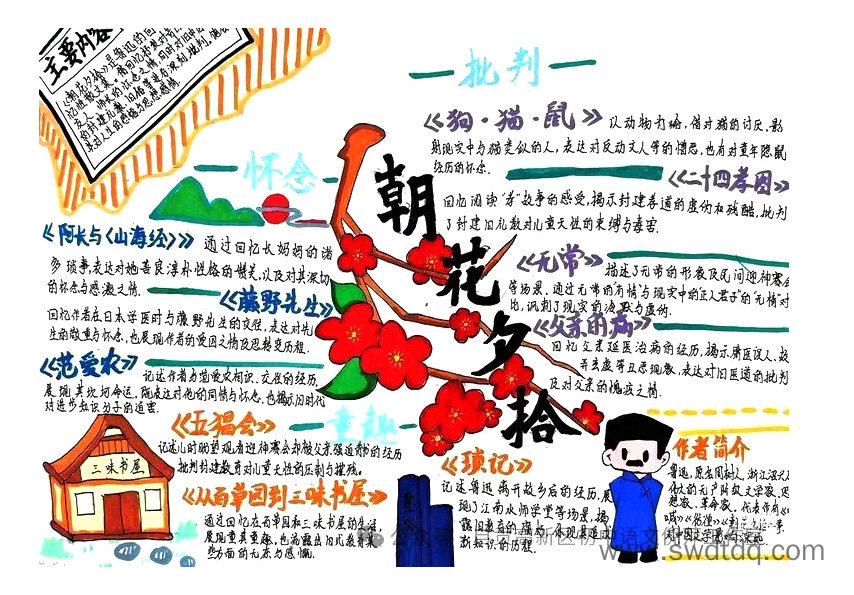 主要内容
《朝花夕拾》是鲁迅的回
忆性散文集。
批判
《狗·猫·鼠》
以动物为喻,借对猫的讨厌,影
射现实中与猫类似的人,表达对反动文人等的憎恶,也有对童年隐鼠
经历的怀念.
《二十四孝图》
回忆阅读"孝"故事的感受,揭示封建孝道的虚伪和残酷,批判
了封建旧礼教对儿童天性的束缚与毒害.
《无常》
描述了无常的形象及民间迎神赛会
等场景,通过无常的有情与现实中的正人君子的"无情"对
比,讽刺了现实的冷默与虚伪.
《父亲的病》
回忆父亲延医治病的经历,揭示庸医误人、故
弄玄虚等丑恶现象,表达对旧医道的批判
及对父亲的愧疚之情.
怀念
《阿长与《山海经》》
通过回忆长妈妈的诸
多琐事,表达对她善良淳朴性格的赞美,以及对其深切
的怀念与感激之情.
《藤野先生》
回忆作者在日本学医时与藤野先生的交往,表达对先
生的敬重与怀念,也展现作者的爱国之情及思想转变历程.
《范爱农》
记述作者与范爱农相识、交往的经历,
展现其坎坷命运,既表达对他的同情与怀念,也揭示旧时代
对进步知识分子的迫害.
朝花夕拾
童趣
《五猖会》
记述儿时盼望观看迎神赛会却被父亲强迫背书的经历
批判封建教育对儿童天性的压制与摧残.
三味书屋
《从百草园到三味书屋》
通过回忆在百草园和三味书屋的生活,
展现童真童趣,也流露出旧式教育某
些方面的无奈与感慨.
《琐记》
记述鲁迅离开故乡后的经历,展
现了江南水师学堂等场景,揭
新知识的历程.
作者简介
鲁迅,原名周树人,浙江
www.swdtdq.com